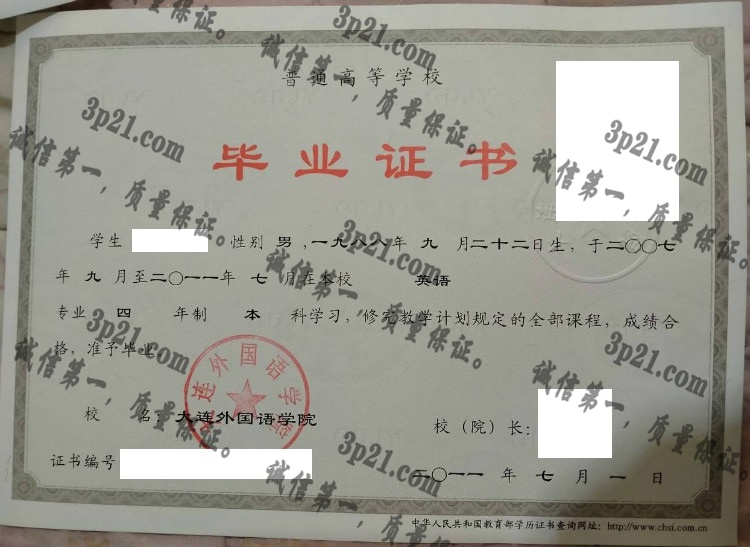 普通高等学校
毕业证书
学生 性别 男 ,一九八八年 九 月二十二日生，于二〇〇七
年 九 月至二〇一一年 七 月在本校 英语
专业 四 年制 本 科学习，修完教学计划规定的全部课程，成绩合
格，准予毕业。
大连外国语学院
校 名：大连外国语学院
校（院）长：
证书编号
二〇一一 年 七 月 一 日
中华人民共和国教育部学历证书查询网址：http://www.chsi.com.cn
3p21.com
诚信第一，质量保证。
3p21.com
诚信第一，质量保证。
3p21.com
诚信第一，质量保证。
3p21.com
诚信第一，质量保证。
3p21.com
诚信第一，质量保证。
3p21.com
诚信第一，质量保证。
3p21.com
诚信第一，质量保证。
质量保证。